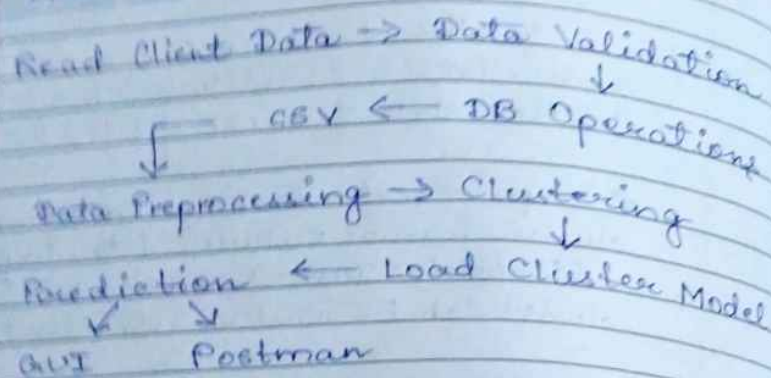 Read Client Data → Data Validation
↓
CSV ← DB Operations
↓
Data Preprocessing → Clustering
↓
Prediction ← Load Cluster Model
↙ ↘
GUI Postman